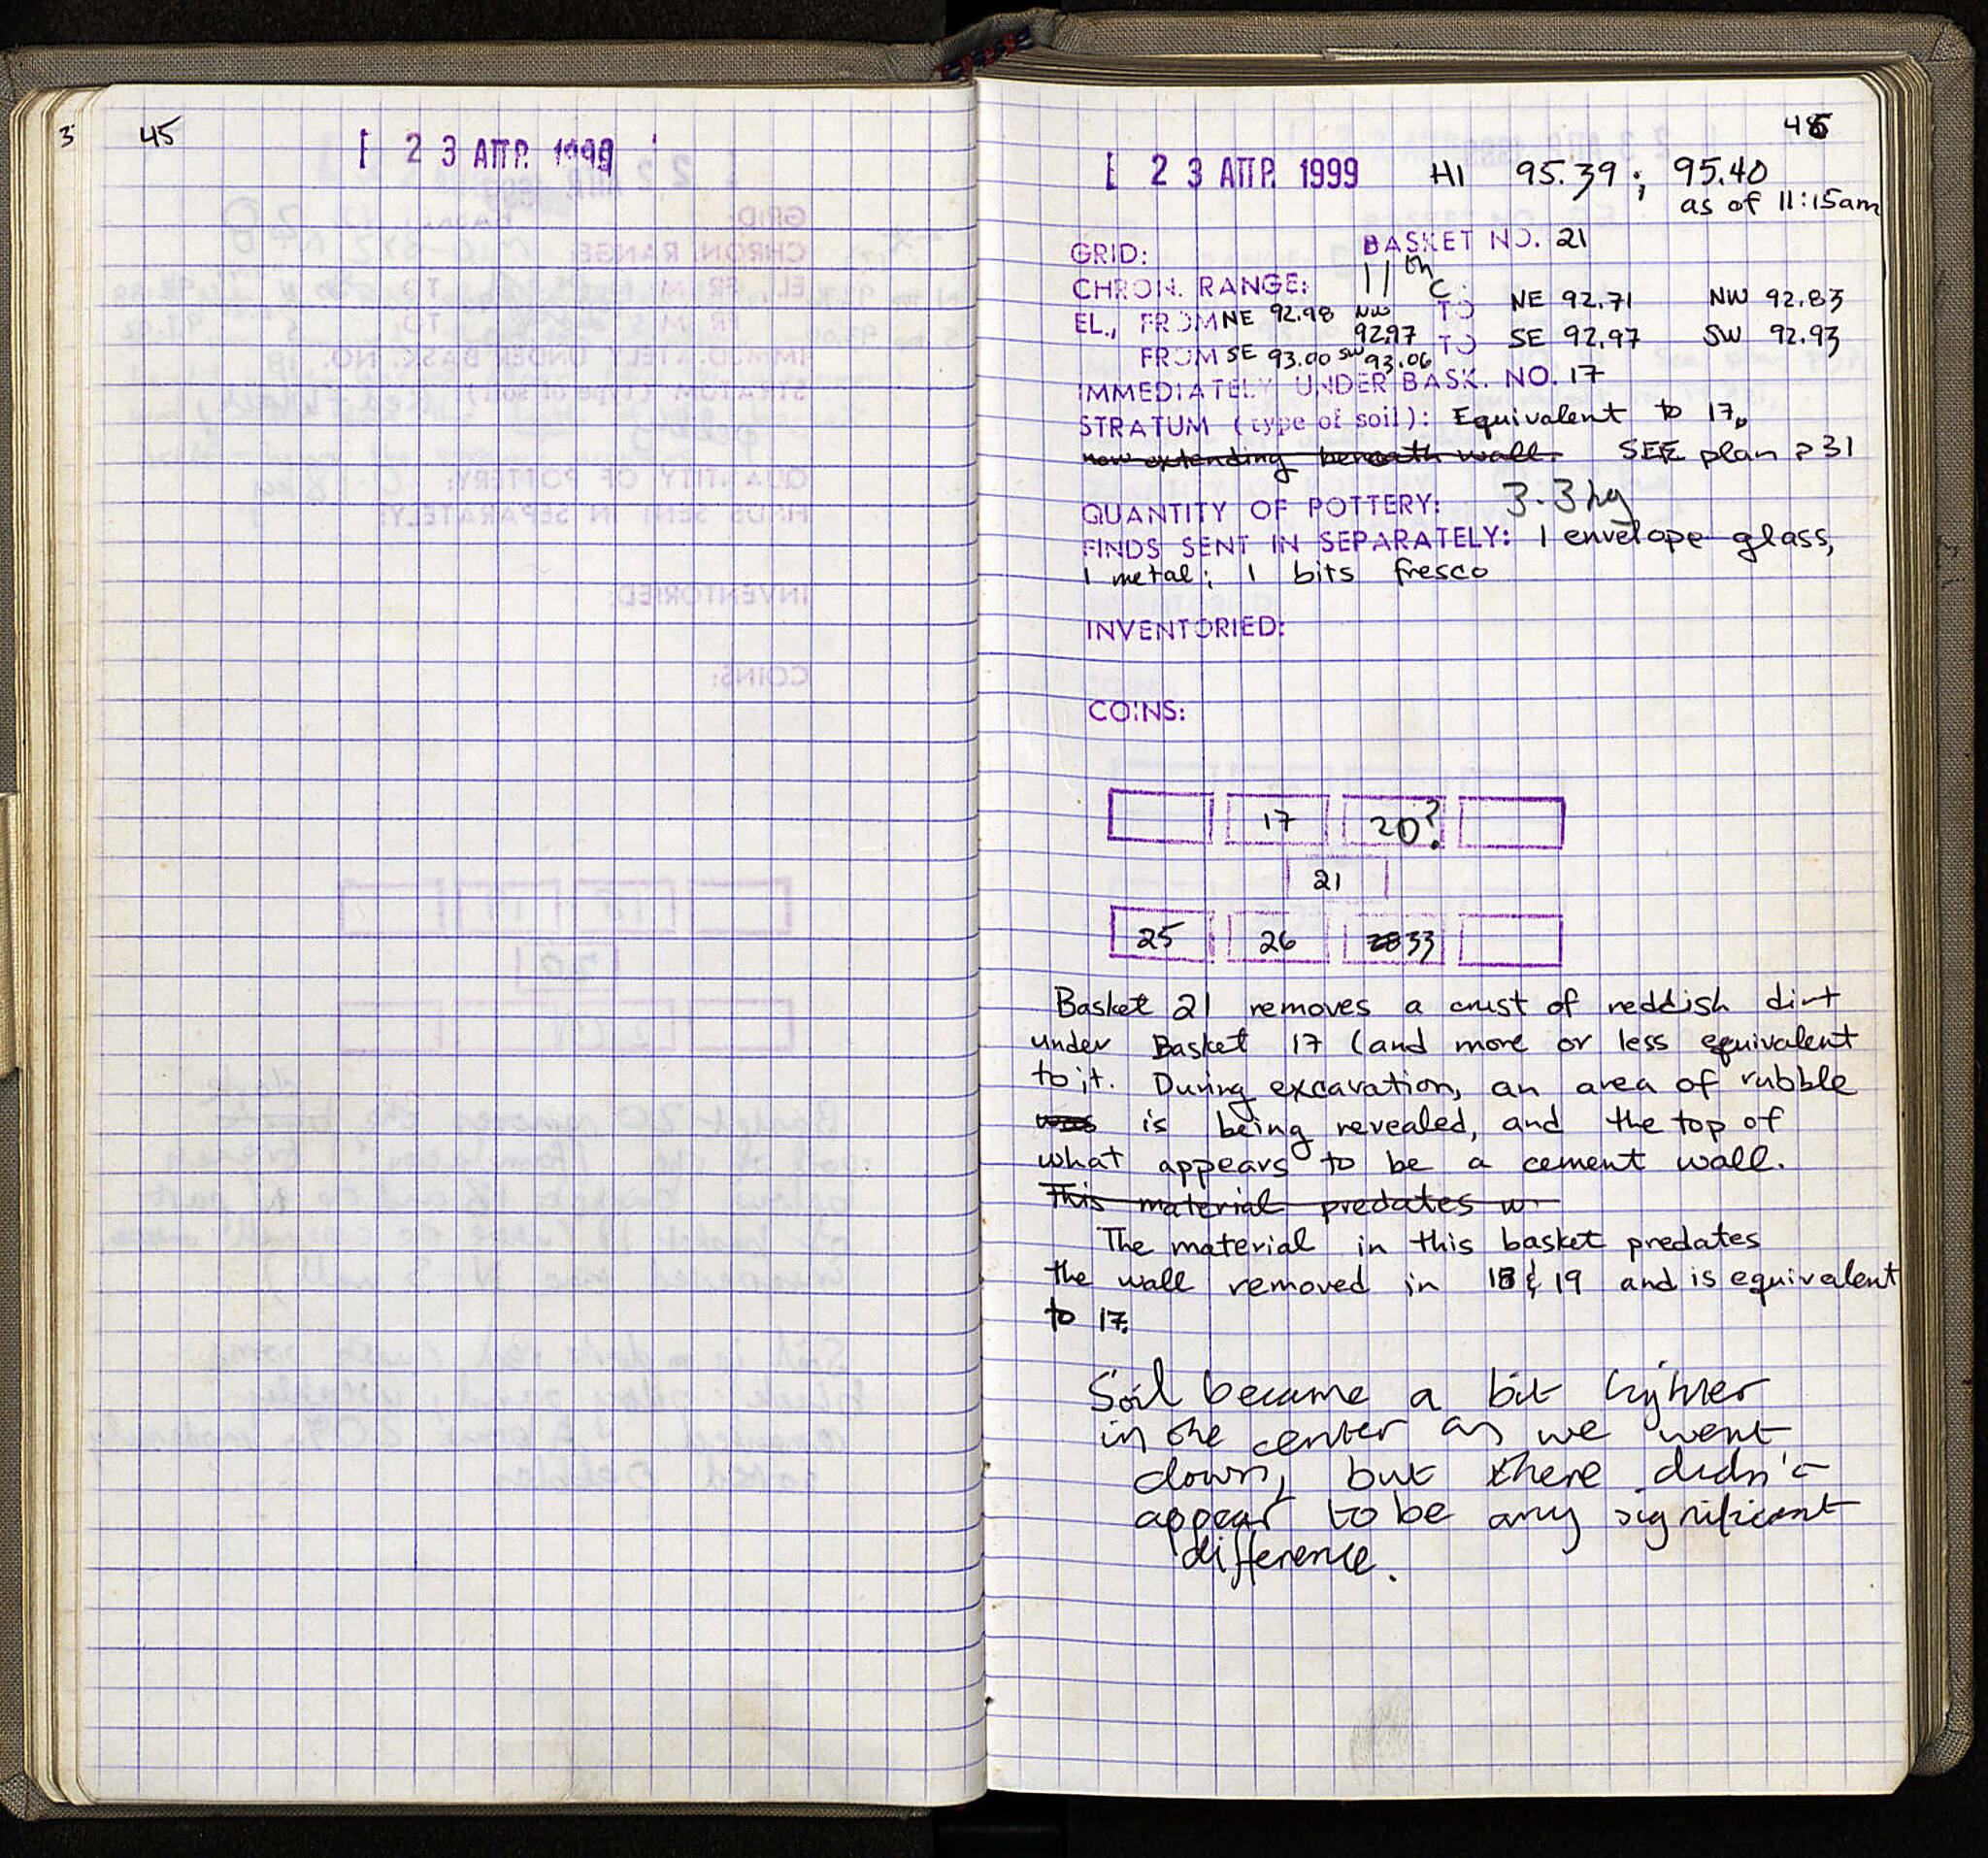 3
45
[ 2 3 ΑΠΡ. 1999
46
[ 2 3 ΑΠΡ. 1999 HI 95.39 ; 95.40
as of 11:15am
GRID: BASKET NO. 21
CHRON. RANGE: 11th c.
EL., FROM NE 92.98 NW 92.97 TO NE 92.71 NW 92.83
FROM SE 93.00 SW 93.06 TO SE 92.97 SW 92.93
IMMEDIATELY UNDER BASK. NO. 17
STRATUM (type of soil): Equivalent to 17.
now extending beneath wall. SEE plan p31
QUANTITY OF POTTERY: 3.3 kg
FINDS SENT IN SEPARATELY: 1 envelope glass,
1 metal; 1 bits fresco
INVENTORIED:
COINS:
17 20?
21
25 26 28 33
Basket 21 removes a crust of reddish dirt
under Basket 17 (and more or less equivalent
to it. During excavation, an area of rubble
was is being revealed, and the top of
what appears to be a cement wall.
This material predates w
The material in this basket predates
the wall removed in 18 & 19 and is equivalent
to 17.
Soil became a bit lighter
in the center as we went
down, but there didn't
appear to be any significant
difference.